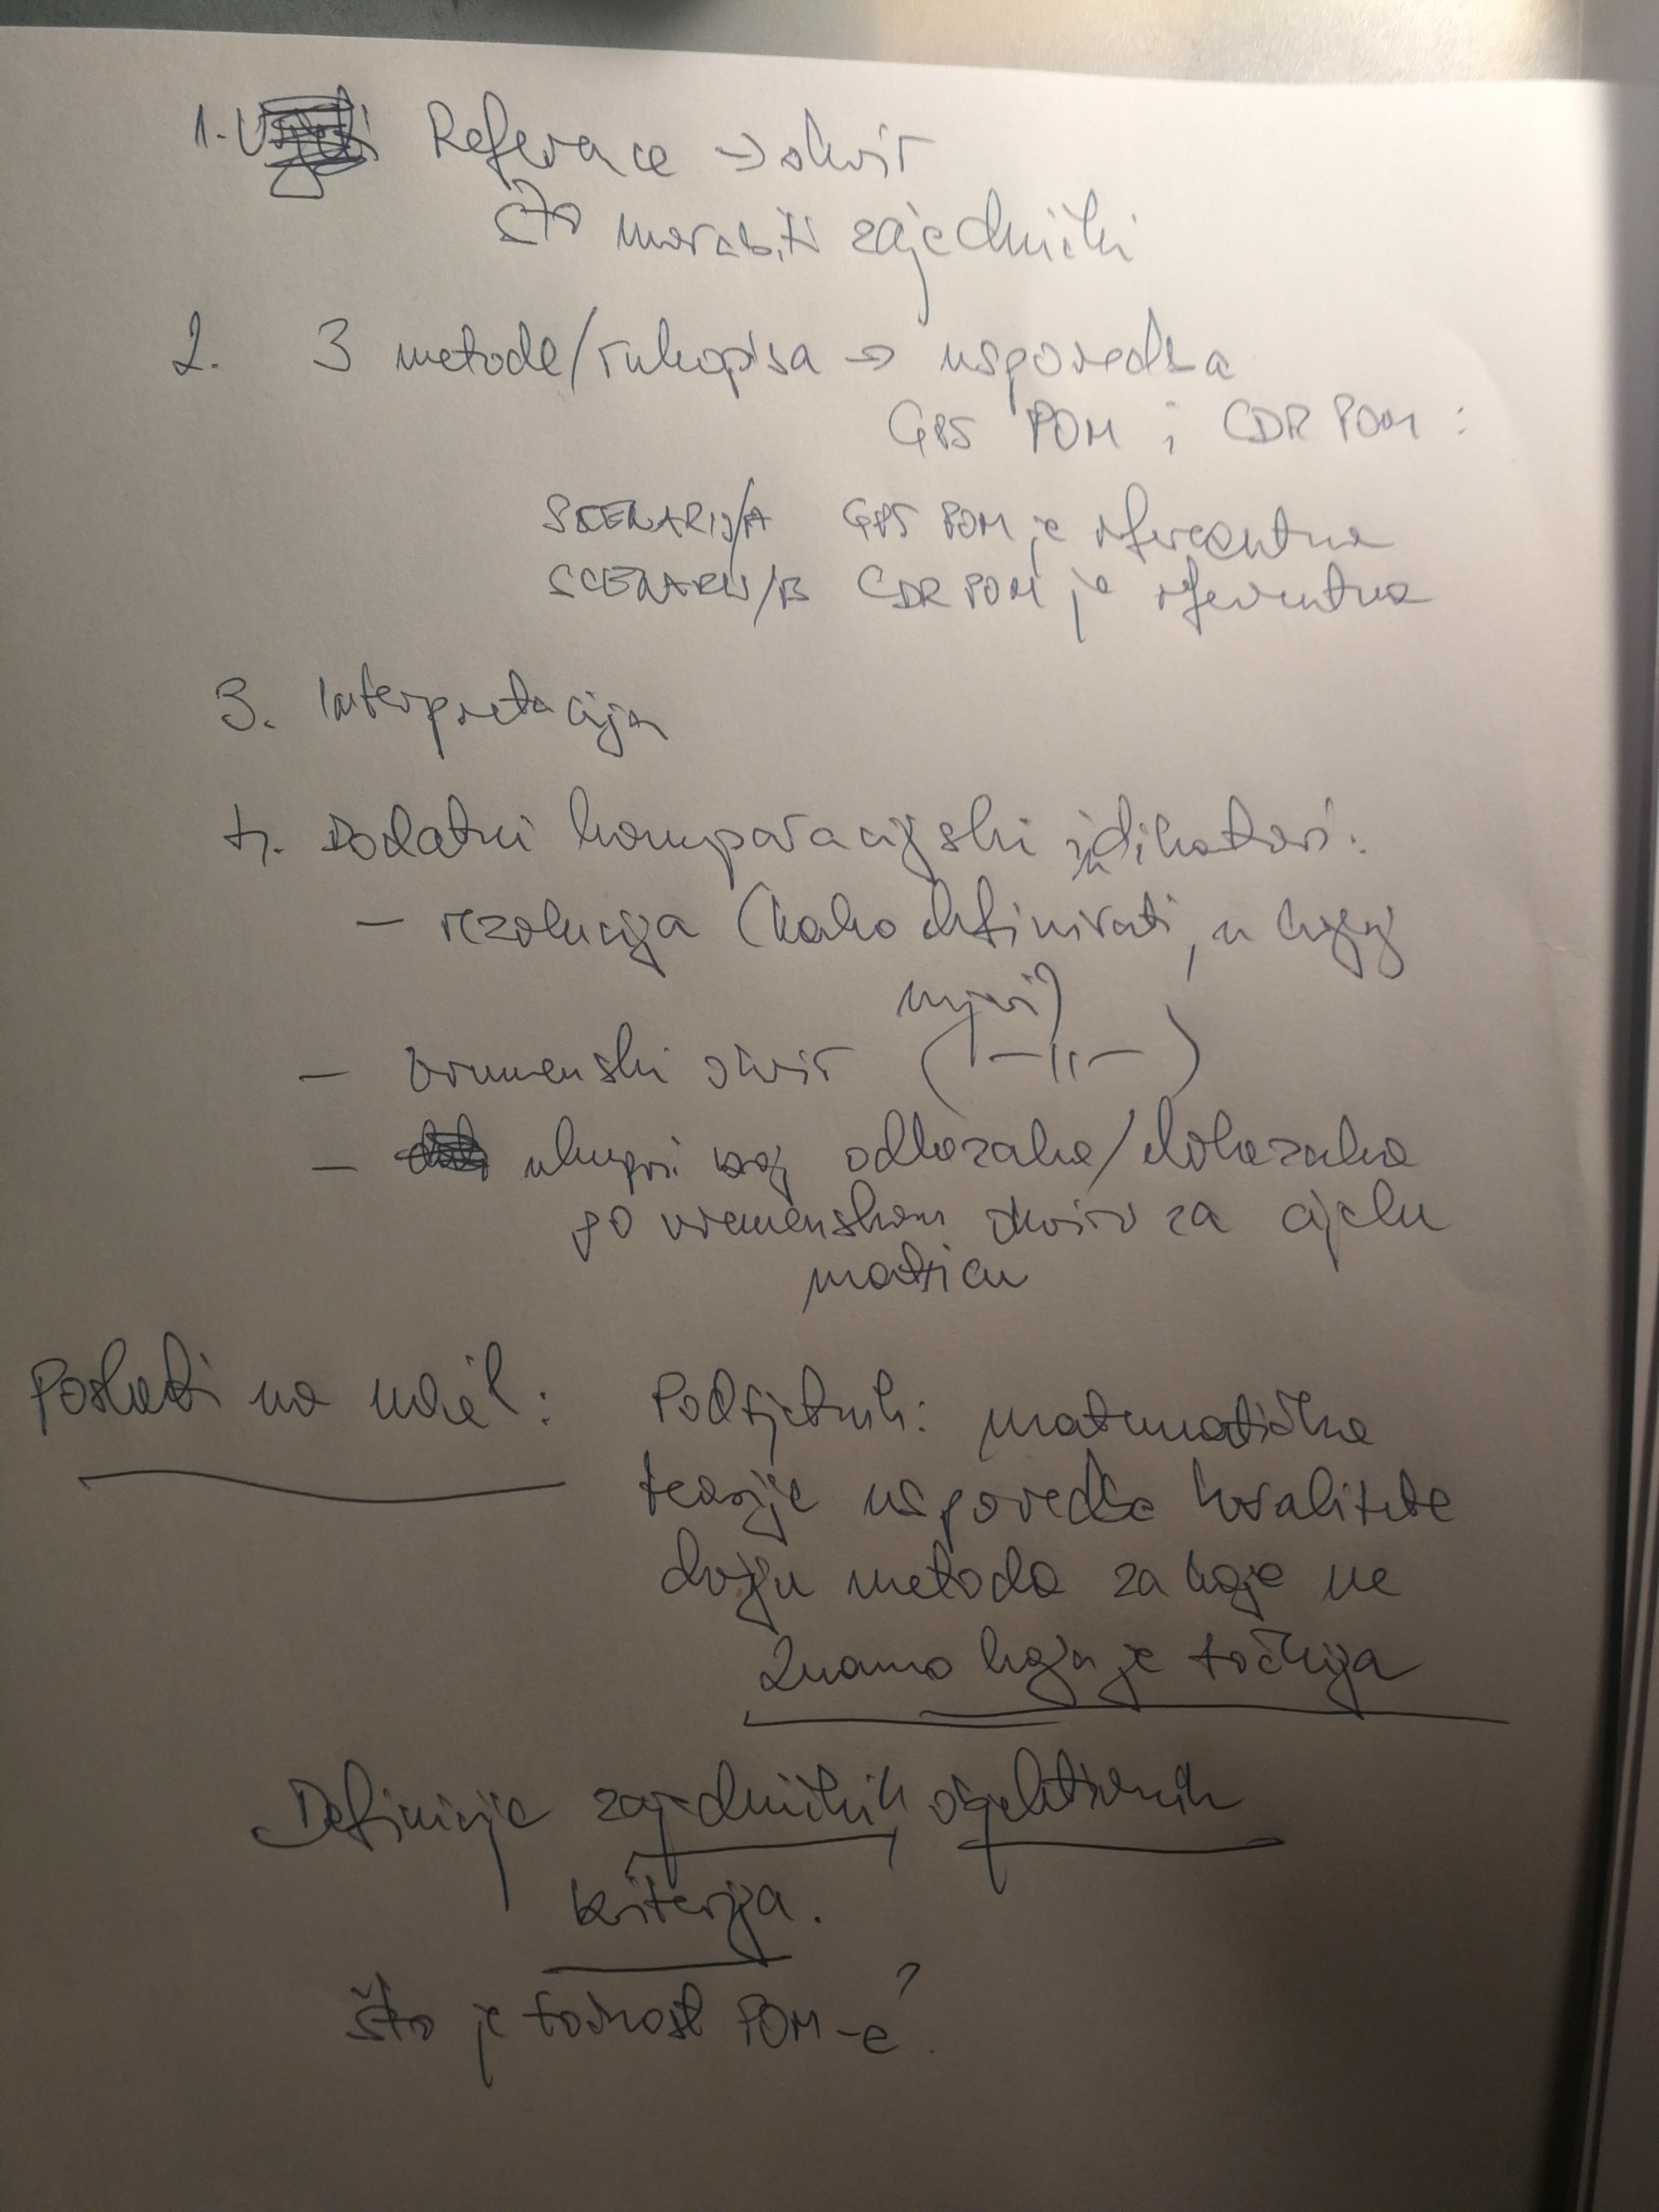 1. Reference → okvir
što mora biti zajednički
2. 3 metode/rukopisa → usporedba
GPS POM i CDR POM :
SCENARIJ/A GPS POM je referentna
SCENARIJ/B CDR POM je referentna
3. Interpretacija
4. Dodatni komparacijski indikatori:
- rezolucija (kako definirati, u kojoj
mjeri)
- vremenski okvir ( —||— )
- ukupni broj odlazaka/dolazaka
po vremenskom okviru za cijelu
matricu
Poslati na mail: Podsjetnik: matematičke
teorije usporedbe kvalitete
dviju metoda za koje ne
znamo koja je točnija
Definicije zajedničkih, objektivnih
kriterija.
Što je točnost POM-e?